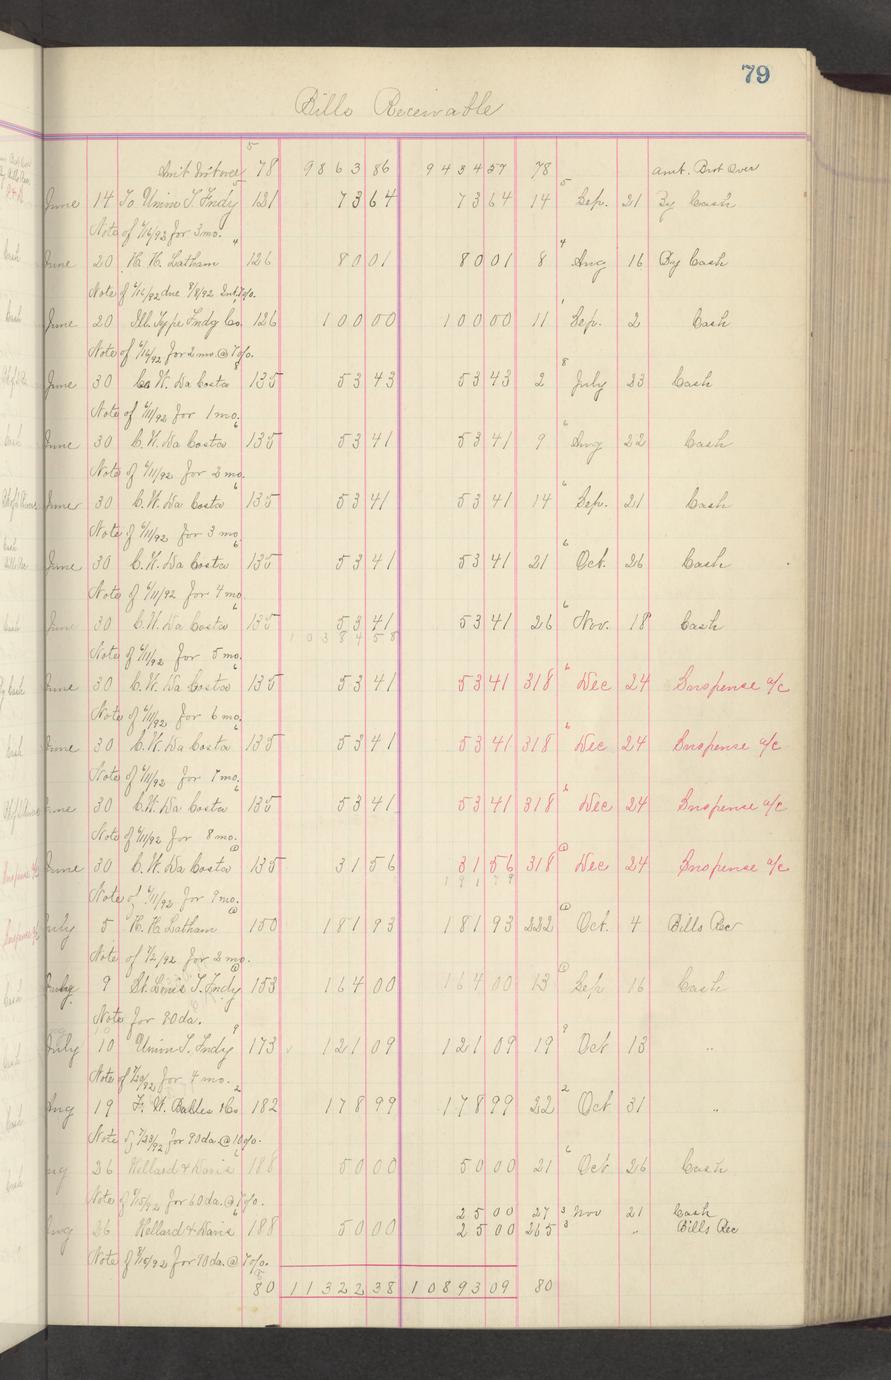 79
Bills Receivable
5
Amt Brt over 78 9863 86 9434 57 78 Amt. Brt Over
June 14 To Union T. Fndy 5 121 73 64 73 64 14 5 Sep. 21 By Cash
Note of 6/14/92 for 3 mo.
June 20 H. H. Latham 4 126 80 01 80 01 8 4 Aug 16 By Cash
Note of 6/16/92 due 8/8/92 Int 7%.
June 20 Ill. Type Fndy Co. 126 100 00 100 00 11 1 Sep. 2 Cash
Note of 6/16/92 for 2 mo. @ 7%.
June 30 C. W. Da Costa 8 135 53 43 53 43 2 8 July 23 Cash
Note of 6/11/92 for 1 mo.
June 30 C. W. Da Costa 6 135 53 41 53 41 9 6 Aug 22 Cash
Note of 6/11/92 for 2 mo.
June 30 C. W. Da Costa 6 135 53 41 53 41 14 6 Sep. 21 Cash
Note of 6/11/92 for 3 mo.
June 30 C. W. Da Costa 6 135 53 41 53 41 21 6 Oct. 26 Cash
Note of 6/11/92 for 4 mo.
June 30 C. W. Da Costa 6 135 53 41 53 41 26 6 Nov. 18 Cash
10384 58
Note of 6/11/92 for 5 mo.
June 30 C. W. Da Costa 6 135 53 41 53 41 318 6 Dec 24 Suspense a/c
Note of 6/11/92 for 6 mo.
June 30 C. W. Da Costa 6 135 53 41 53 41 318 6 Dec 24 Suspense a/c
Note of 6/11/92 for 7 mo.
June 30 C. W. Da Costa 6 135 53 41 53 41 318 6 Dec 24 Suspense a/c
Note of 6/11/92 for 8 mo.
June 30 C. W. Da Costa 135 31 56 31 56 318 Dec 24 Suspense a/c
191 79
Note of 6/11/92 for 9 mo.
July 5 H. H. Latham 150 181 93 181 93 222 Oct. 4 Bills Rec
Note of 7/2/92 for 2 mo.
July 9 St. Louis T. Fndy 153 164 00 164 00 13 Sep 16 Cash
Note for 80 da.
July 10 Union T. Fndy 9 173 121 09 121 09 19 9 Oct 13 "
Note of 7/20/92 for 4 mo.
Aug 19 F. W. Balles & Co 2 182 178 99 178 99 22 2 Oct 31 "
Note of 7/23/92 for 90 da. @ 10%.
Aug 26 Hellard & Davis 188 50 00 50 00 21 6 Oct 26 Cash
Note of 8/15/92 for 60 da. @ 7%.
25 00 27 3 Nov 21 Cash
Aug 26 Hellard & Davis 6 188 50 00 25 00 265 3 " Bills Rec
Note of 8/15/92 for 90 da. @ 7%.
80 11322 38 10893 09 80